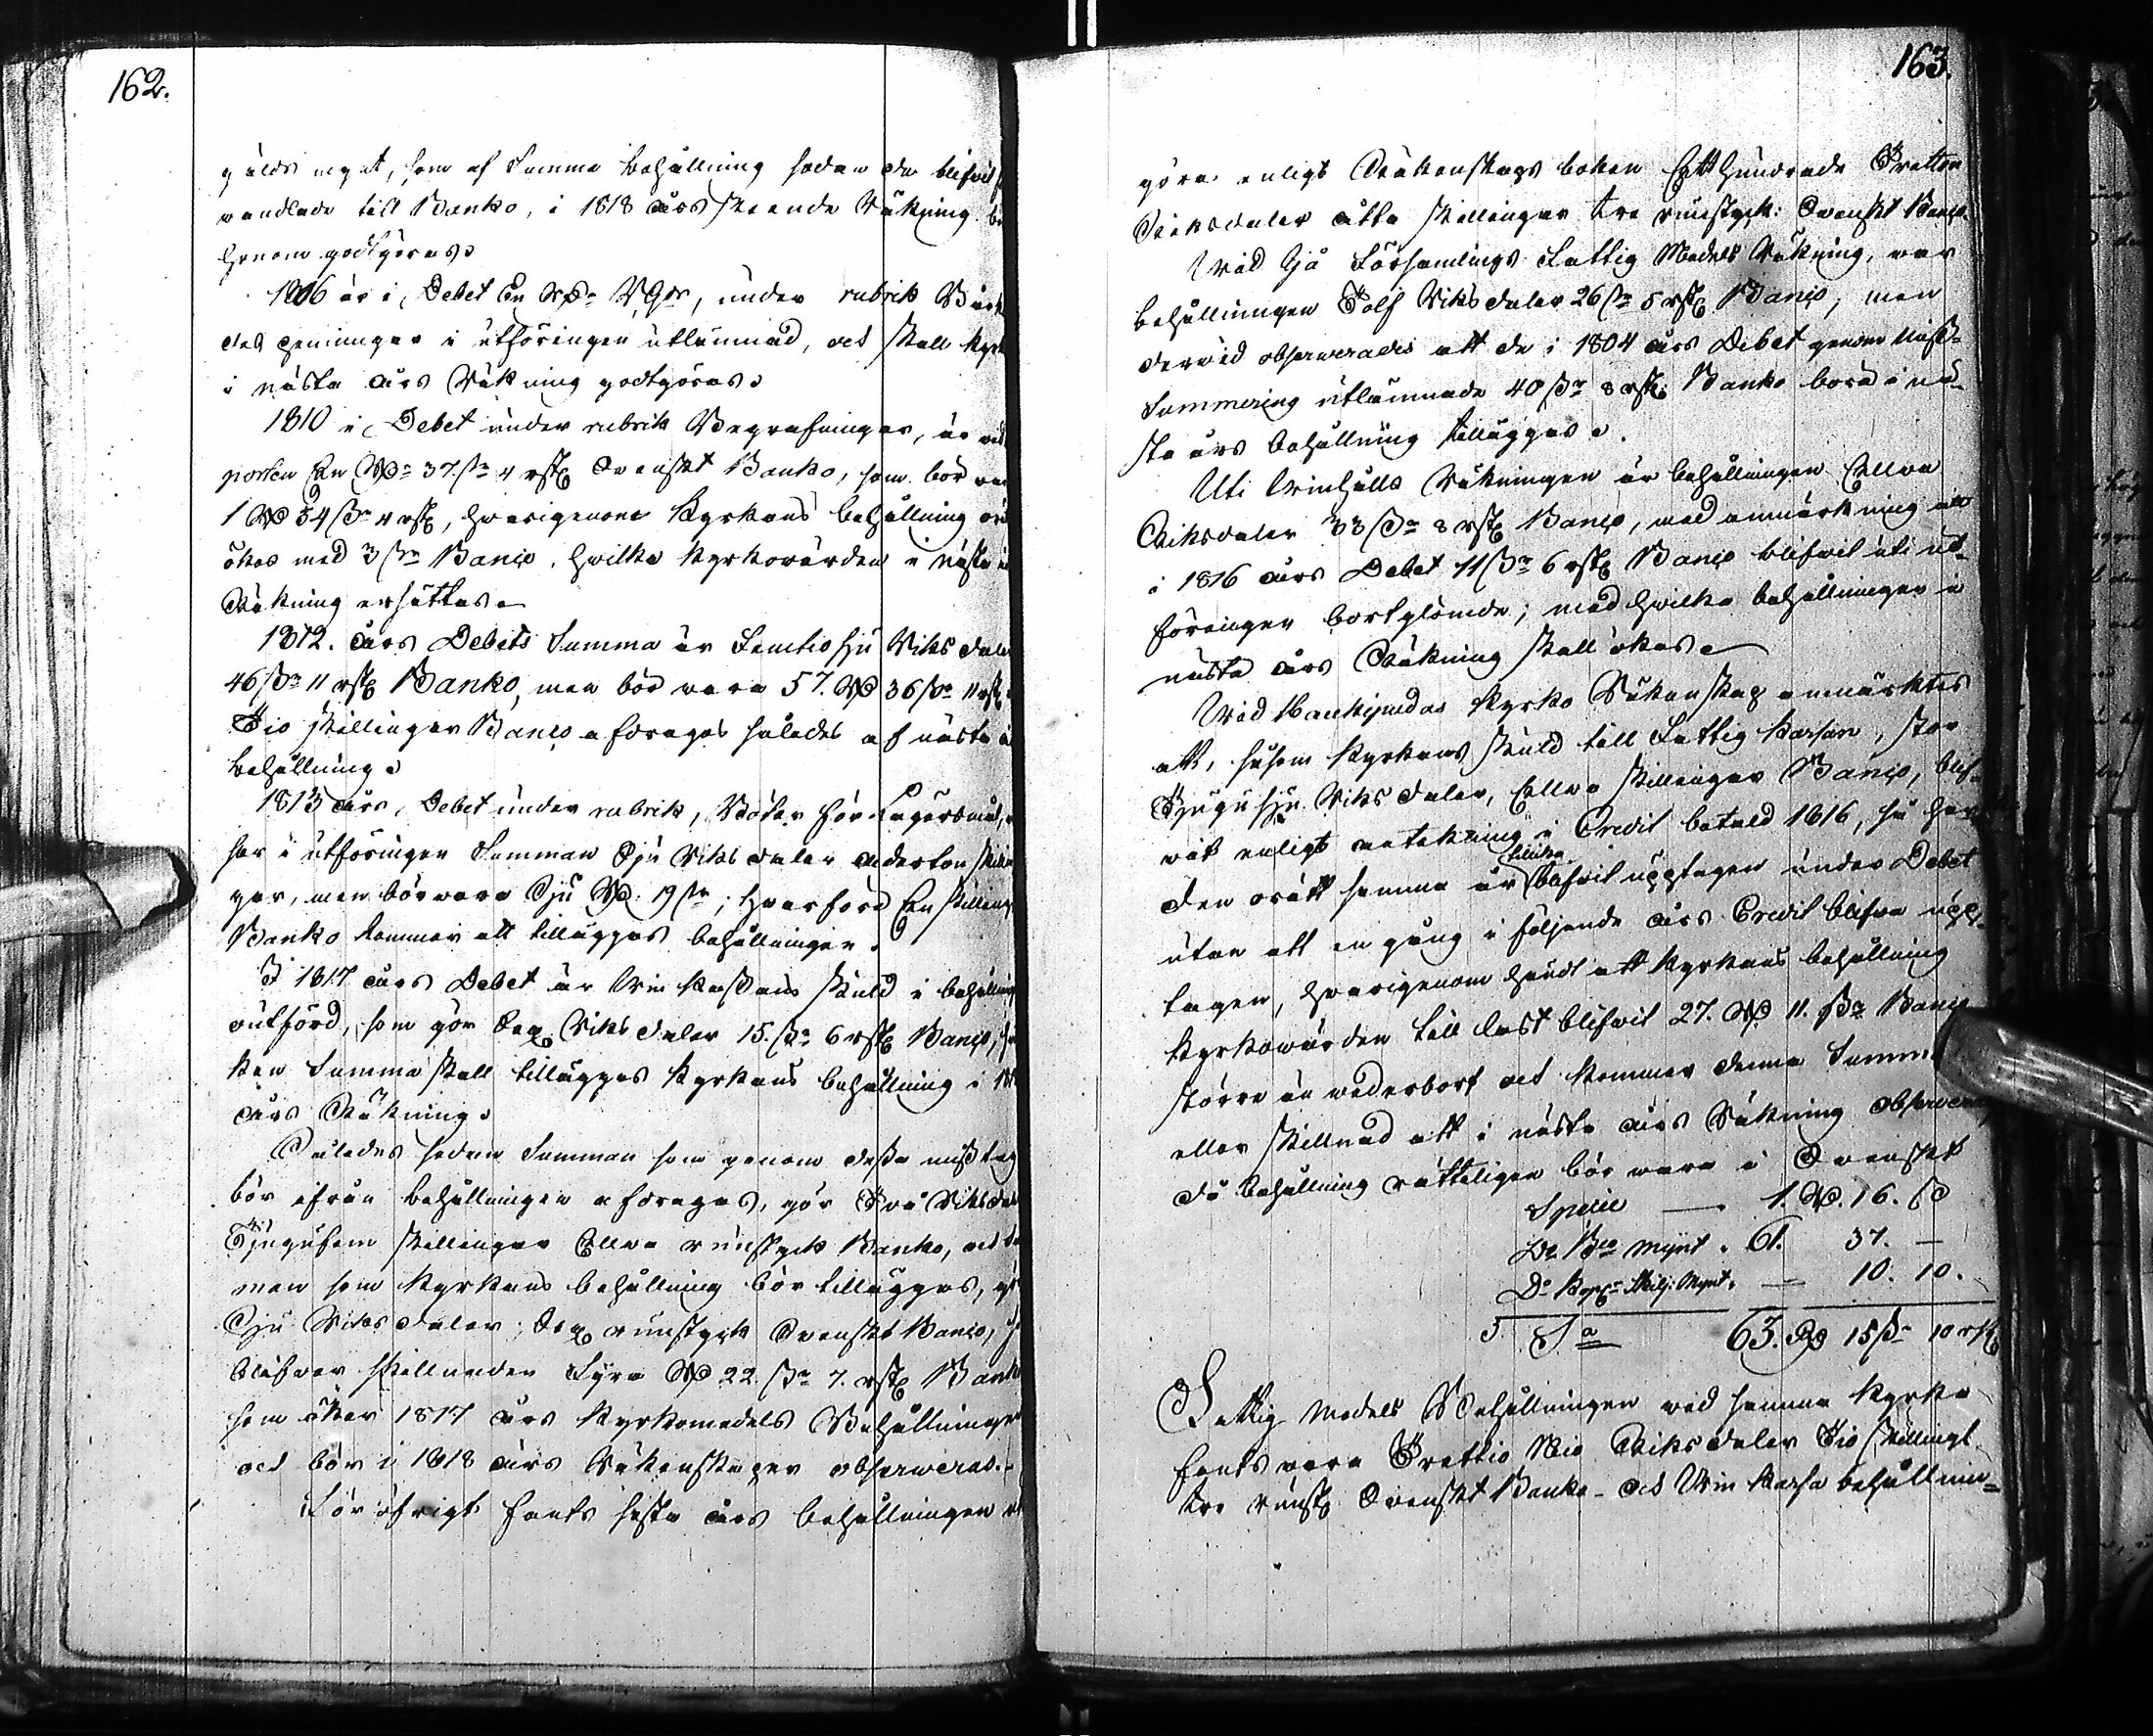 162.
gälds mynt, som af Summa behållning sedan de blifvit
vandlade till Banko, i 1818 års skeende Räkning
genom godtgöras.
1806 är i Debet En Rd: Rgs, under rubrik
penningar i utföringen utlämnad, och skall
i nästa års Räkning godtgöras.
1810 i Debet under rubrik Begrafningar, är
posten En Rd: 37 sk: 4 rst Svenskt Banko, som bör
1 Rd 34 sk: 4 rst, hvarigenom Kyrkans behållning
ökas med 3 sk: Banco, hvilka Kyrkovärden i nästa
Räkning ersättas.
1812. års Debets Summa är Femtiosju Riksdaler
46 sk: 11 rst Banko, men bör vara 57. Rd 36 sk: 11 rst
Tio skillingar Banco afdrages således af nästa
behållning.
1813 års, Debet under rubrik, Böter för Lägersmål,
har i utföringen Summan Sju Riksdaler aderton
gar, men bör vara Sju Rd. 19 sk; hvarföre En skilling
Banko kommer att tilläggas behållningen.
I 1817 års Debet är Vin Kassans skuld i behållning
outförd, som gör Sex Riksdaler 15. sk: 6 rst Banco,
ken Summa skall tilläggas Kyrkans behållning i
års Räkning.
Således sedan Summan som genom dessa misstag
bör ifrån behållningen afdragas, gör Två Riksdaler
Tjugufem skillingar Ellva runstyck Banko, och
man som Kyrkans behållning bör tilläggas, gör
Sju Riksdaler, Sex runstyck Svenskt Banco,
blifver skillnaden Fyra Rd 22. sk: 7. rst Banko
som ökar 1817 års Kyrkomedels Behållningen
och bör i 1818 års Räkenskaper observeras.-
För öfrigt fants sista års behållningen
163.
göra enligt Räkenskaps boken Ett Hundrade Tretton
Riksdaler åtta skillingar tre runstyck: Svenskt Banco.
Vid Sjå Församlings Fattig Medels Räkning, var
behållningen Tolf Riksdaler 26 sk: 5 rst Banco, men
dervid observerades att de i 1804 års Debet genom miss-
Summering utlämnade 40 sk: 8 rst: Banko borde i nä-
sta års behållning tilläggas.
Uti Vinhålls Räkningen är behållningen Ellva
Riksdaler 33 sk: 8 rst Banco, med anmärkning att
i 1816 års Debet 11 sk: 6 rst Banco blifvit uti ut-
föringen bortglömde; med hvilka behållningen i
nästa års Räkning skall ökas.
Vid Hackspedas Kyrko Räkenskap anmärktes
att, såsom Kyrkans skuld till Fattig Kassan, stor
Tjugu sju Riksdaler, Ellva skillingar Banco, blif-
vit enligt anteckning i Credit betald 1816, så har
den orätt samma år tillika blifvit upptagen under Debet
utan att en gång i följande års Credit blifva upp-
tagen, hvarigenom händt att Kyrkans behållning
Kyrkovärden till last blifvit 27. Rd 11. sk: Banco
större än vederbort och kommer denna Summa
eller skillnad att i nästa års Räkning observeras
då behållning rätteligen bör vara i Svenskt
Specie — 1. Rd. 16. sk
Do Bco Mynt. 61. 37. —
Do Kopp: Skilj: Mynt. — 10. 10.
Sa 63. Rd 15 sk: 10 rst
Fattig Medels Behållningen vid samma Kyrka
fants vara Trettio Nio Riksdaler Tio skilling
tre runst Svenskt Banko - och Vin Kassa behållnin-